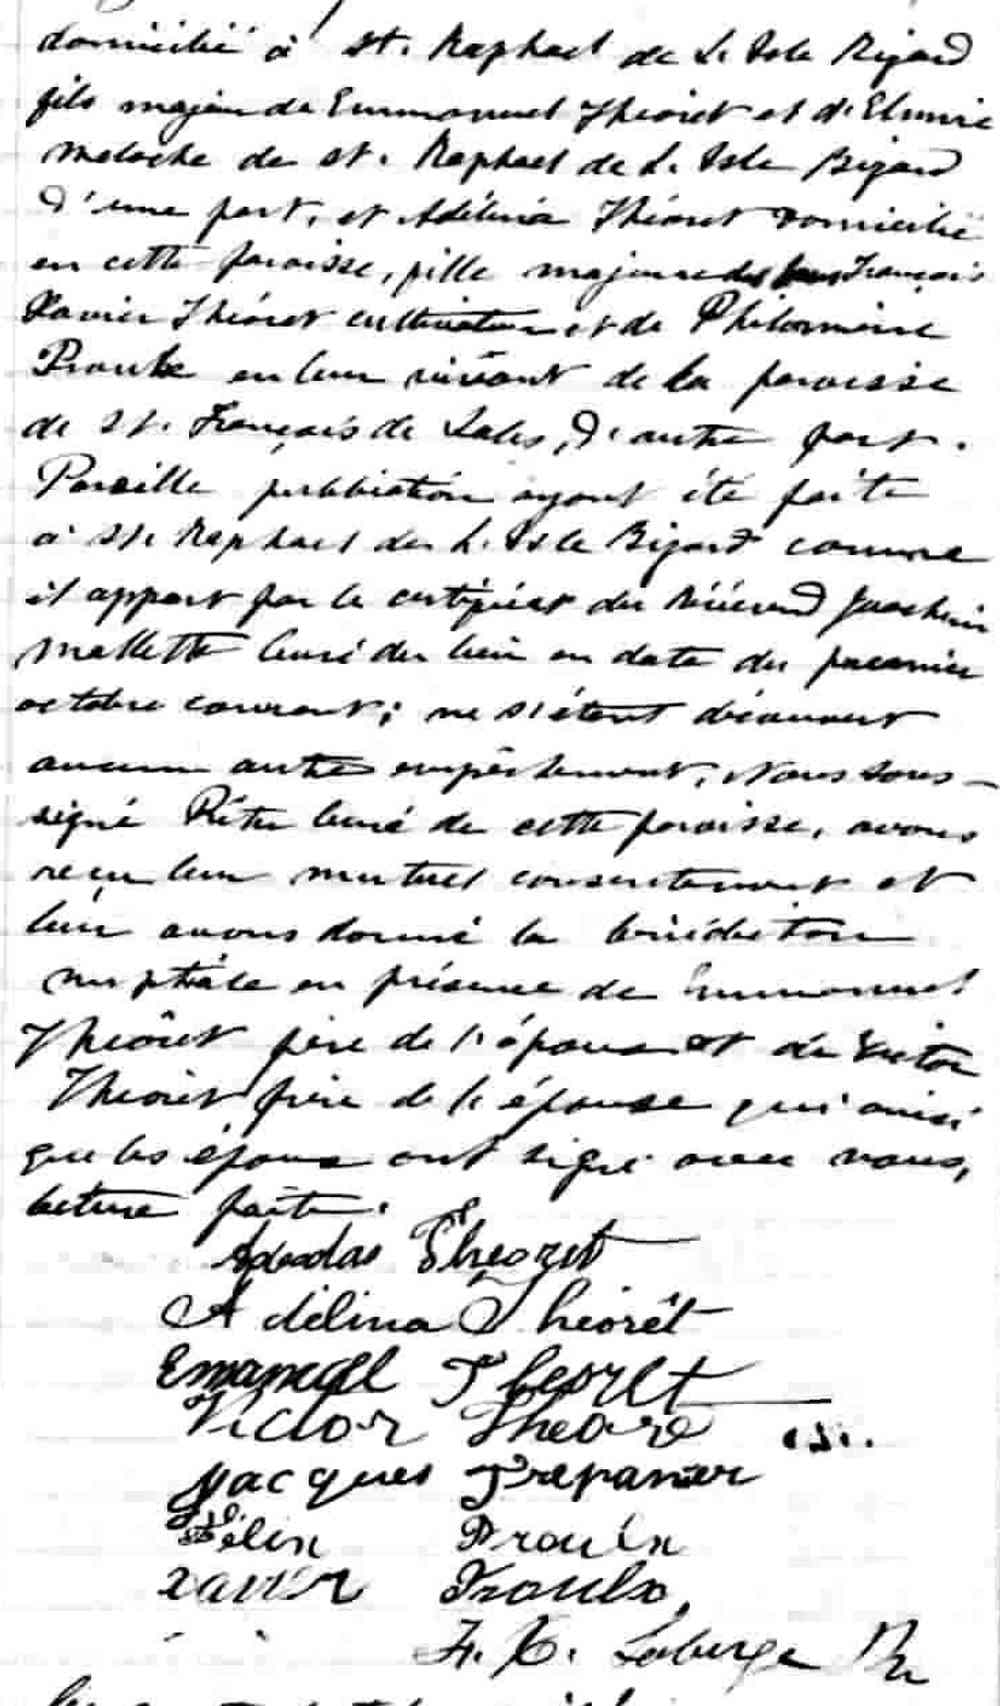 domicilié à St. Raphael de L'Isle Bizard
fils majeur de Emmanuel Théoret et d'Elmire
Meloche de St. Raphael de L'Isle Bizard
d'une part, et Adélina Théoret domicilié
en cette paroisse, fille majeure des François
Xavier Théoret cultivateur et de Philomène
Proulx en leur vivant de la paroisse
de St. François de Sales, d'autre part.
Pareille publication ayant été faite
à St. Raphael de L'Isle Bizard comme
il appert par le certificat du Révérend Joachim
Mallette Curé du lieu en date du premier
octobre courant; ne s'étant découvert
aucun autre empêchement, Nous sous-
signé Prêtre Curé de cette paroisse, avons
reçu leur mutuel consentement et
leur avons donné la bénédiction
nuptiale en présence de Emmanuel
Théoret père de l'époux et de Victor
Théoret frère de l'épouse qui ainsi
que les époux ont signé avec nous,
lecture faite.
Théoret
Adélina Théorêt
Emanuel Theoret
Victor Theore
Jacques Trepanier
Félix Proulx
Xavier Proulx
F. X. Laberge Ptr